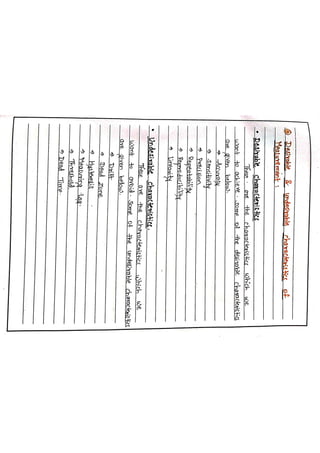 Desirable & undesirable characteristics of
Measurement :
• Desirable characteristics
These are the characteristics which we
want to achieve. some of the desirable characteristics
are given below.
→ Accuracy
→ Sensitivity
→ Precision
→ Repeatability
→ Reproducibility
→ Linearity
• Undesirable characteristics:
These are the characteristics which we
want to avoid. Some of the undesirable characteristics
are given below.
→ Drift
→ Dead Zone
→ Hysteresis
→ Measuring lag
→ Threshold
→ Dead Time